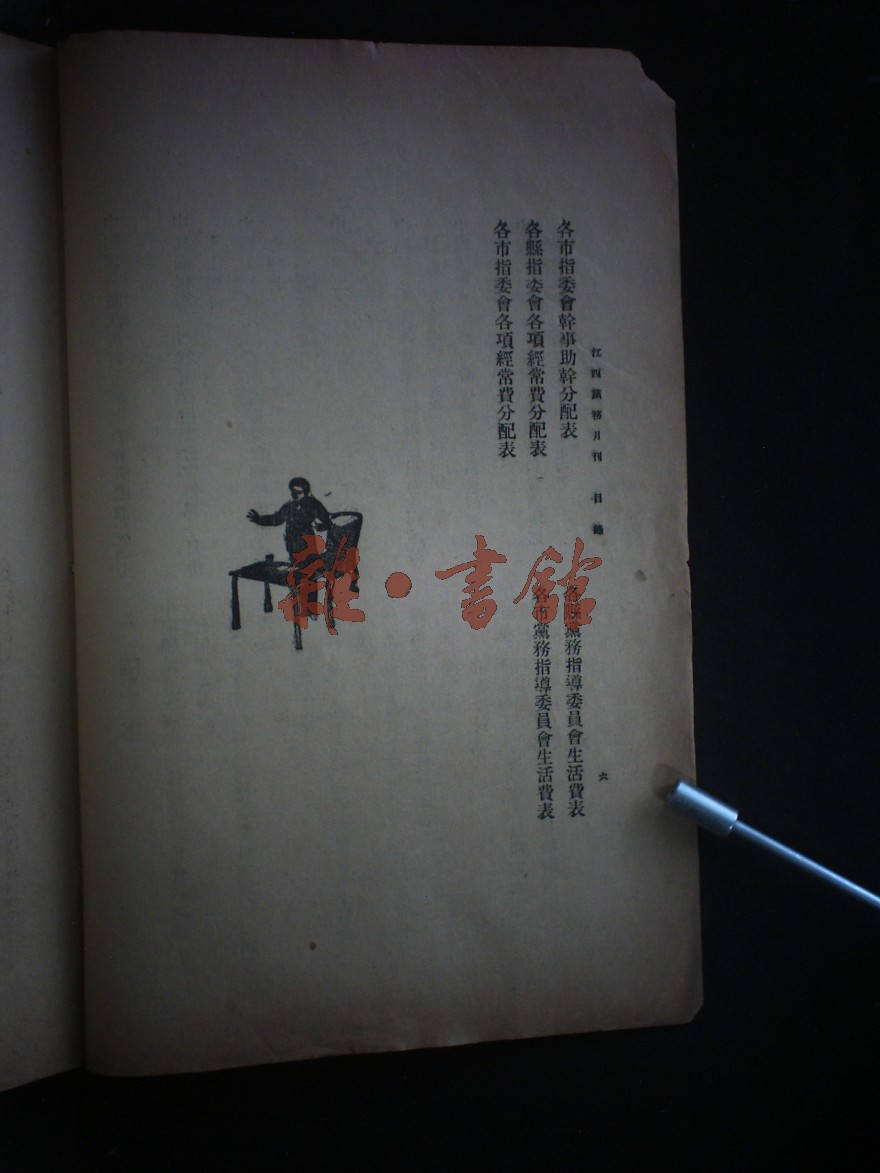 江西黨務月刊 目錄 六
各市指委會幹事助幹分配表
各縣黨務指導委員會生活費表
各縣指委會各項經常費分配表
各市黨務指導委員會生活費表
各市指委會各項經常費分配表
雜·書館